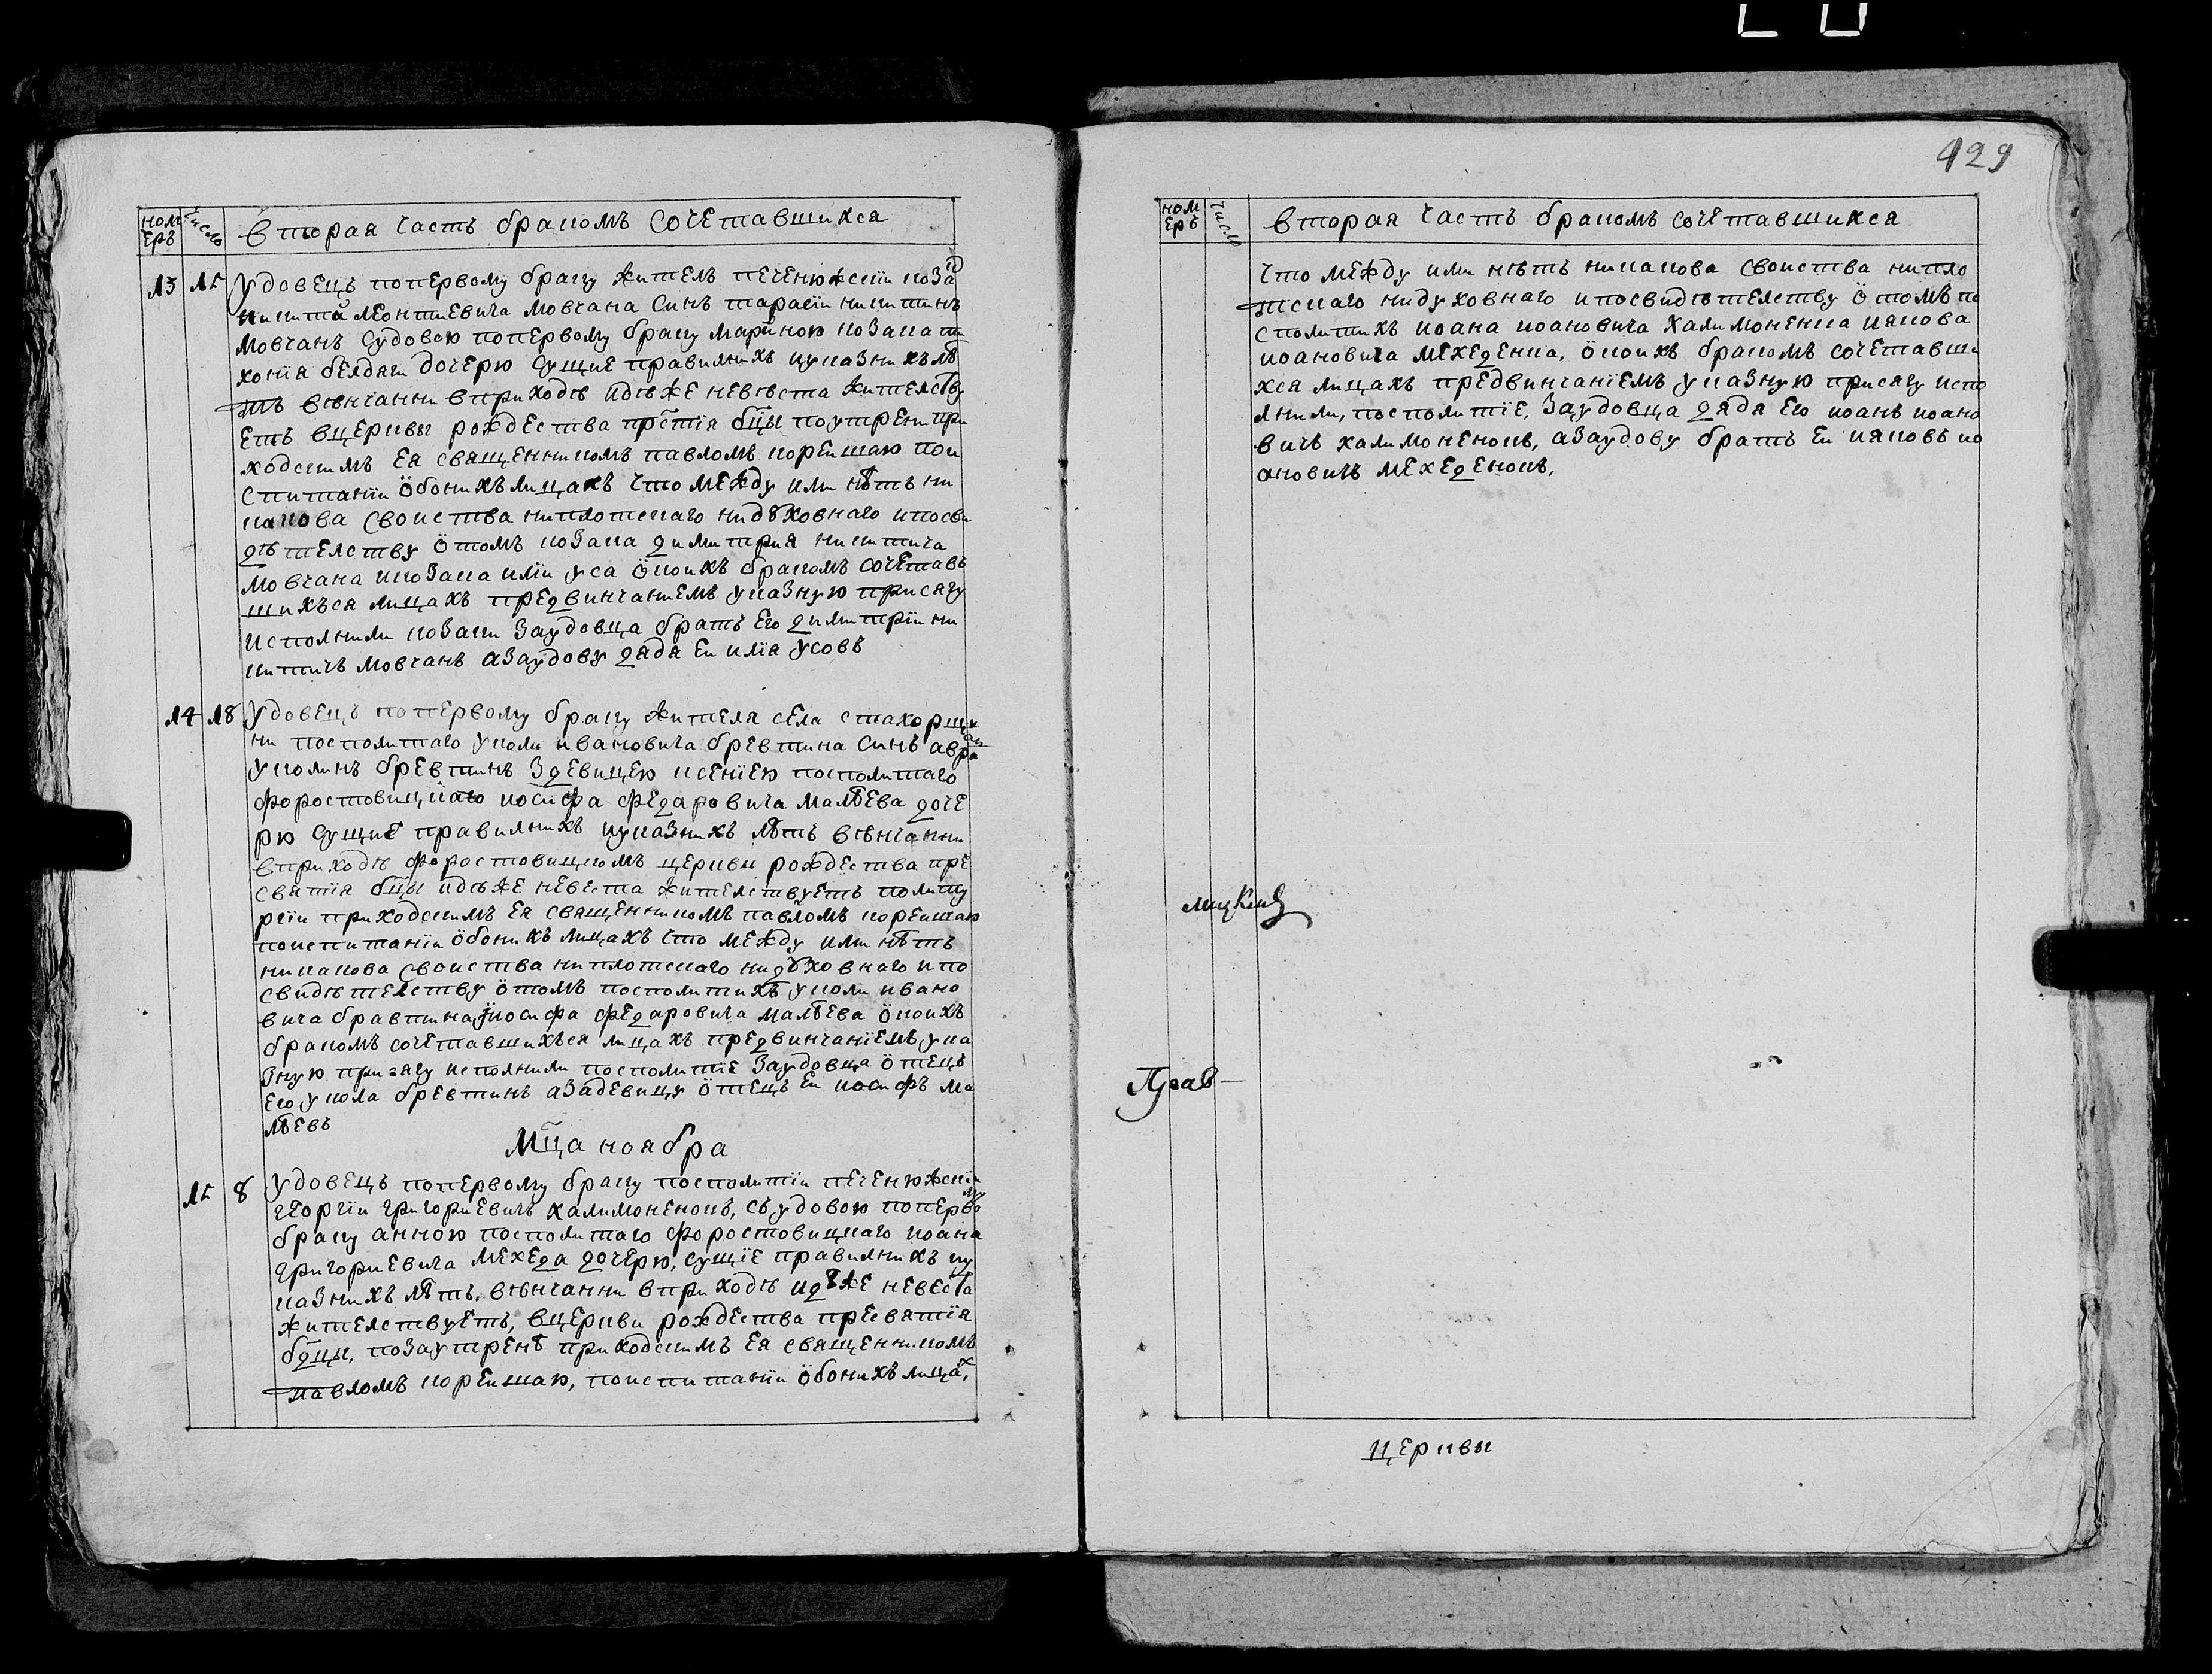 номеръ число вторая часть бракомъ сочетавшихся
13 15 Удовецъ попервому браку жителъ печенюжскїи козакъ
никита леонтиевича мовчана синъ тарасїи никитинъ
мовчанъ судовою попервому браку мариною козака ти
хонїя белдаги дочерю сущие правилнихъ иуказнихълѣ
тъ вѣнчанни вприходѣ идѣже невѣста жителству
етъ вцеркви рождества престїя бцы поутрени при
ходскимъ ея священникомъ павломъ корейшаю пои
спитанїи ѿбоихълицахъ что между ими нѣтъ ни
какова своиства ниплотскаго нидуховнаго ипосви
дѣтелству ѿтомъ козака димитрия никитича
мовчана икозака илїи уса ѿкоихъ бракомъ сочетавъ
шихъся лицахъ предвинчаниемъ указную присягу
исполнили козаки заудовца братъ его димитрїи ни
китичъ мовчанъ азаудову дядя еи илїя усовъ
14 18 Удовецъ попервому браку жителя села стахорщи
ни посполитаго уколи ивановича бревтина синъ аврам
уколинъ бревтинъ здевицею ксенїею посполитаго
форостовицкаго иосифа федаровича малѣева доче
рю сущие правилнихъ иуказнихъ лѣтъ вѣнчанни
вприходѣ форостовицкомъ церкви рождества пре
святїя бцы идѣже невеста жителствуетъ политу
ргїи приходскимъ ея священникомъ павломъ корейшаю
поиспитанїи ѿбоихъ лицахъ что между ими нѣтъ
никакова своиства ниплотскаго нидуховнаго ипо
свидѣтелству ѿтомъ посполитихъ уколи ивано
вича бравтина иосифа федаровича малѣева ѿкоихъ
бракомъ сочетавшихъся лицахъ предвинчанїемъ ука
зную присягу исполнили посполитїе заудовца ѿтецъ
его укола бревтинъ азадевицу ѿтецъ еи иосифъ ма
лѣевъ
Мца ноября
15 8 Удовецъ попервому браку посполитїи печенюжскїи
георгїи григориевичъ халимоненокъ, съудовою попервому
браку анною посполитаго форостовицкаго иоана
григориевича мехеда дочерю, сущїе правилнихъ иу
казнихъ лѣтъ, вѣнчанни вприходѣ идѣже невеста
жителствуетъ, вцеркви рождества пресвятїя
бдцы, позаутренѣ приходскимъ ея священникомъ
павломъ корейшаю, поиспитанїи ѿбоихъ лицахъ,
429
номеръ число вторая часть бракомъ сочетавшихся
что между ими нѣтъ никакова своиства нипло
тскаго нидуховнаго ипосвидѣтелству ѿтомъ по
сполитихъ иоана иоановича халимоненка иякова
иоановича мехеденка, ѿкоихъ бракомъ сочетавши
хся лицахъ предвинчанїемъ указную присягу испо
лнили, посполитїе, заудовца дядя его иоанъ иоано
вичъ халимоненокъ, азаудову братъ еи ияковъ ио
ановичъ мехеденокъ,
Прав—
церкви